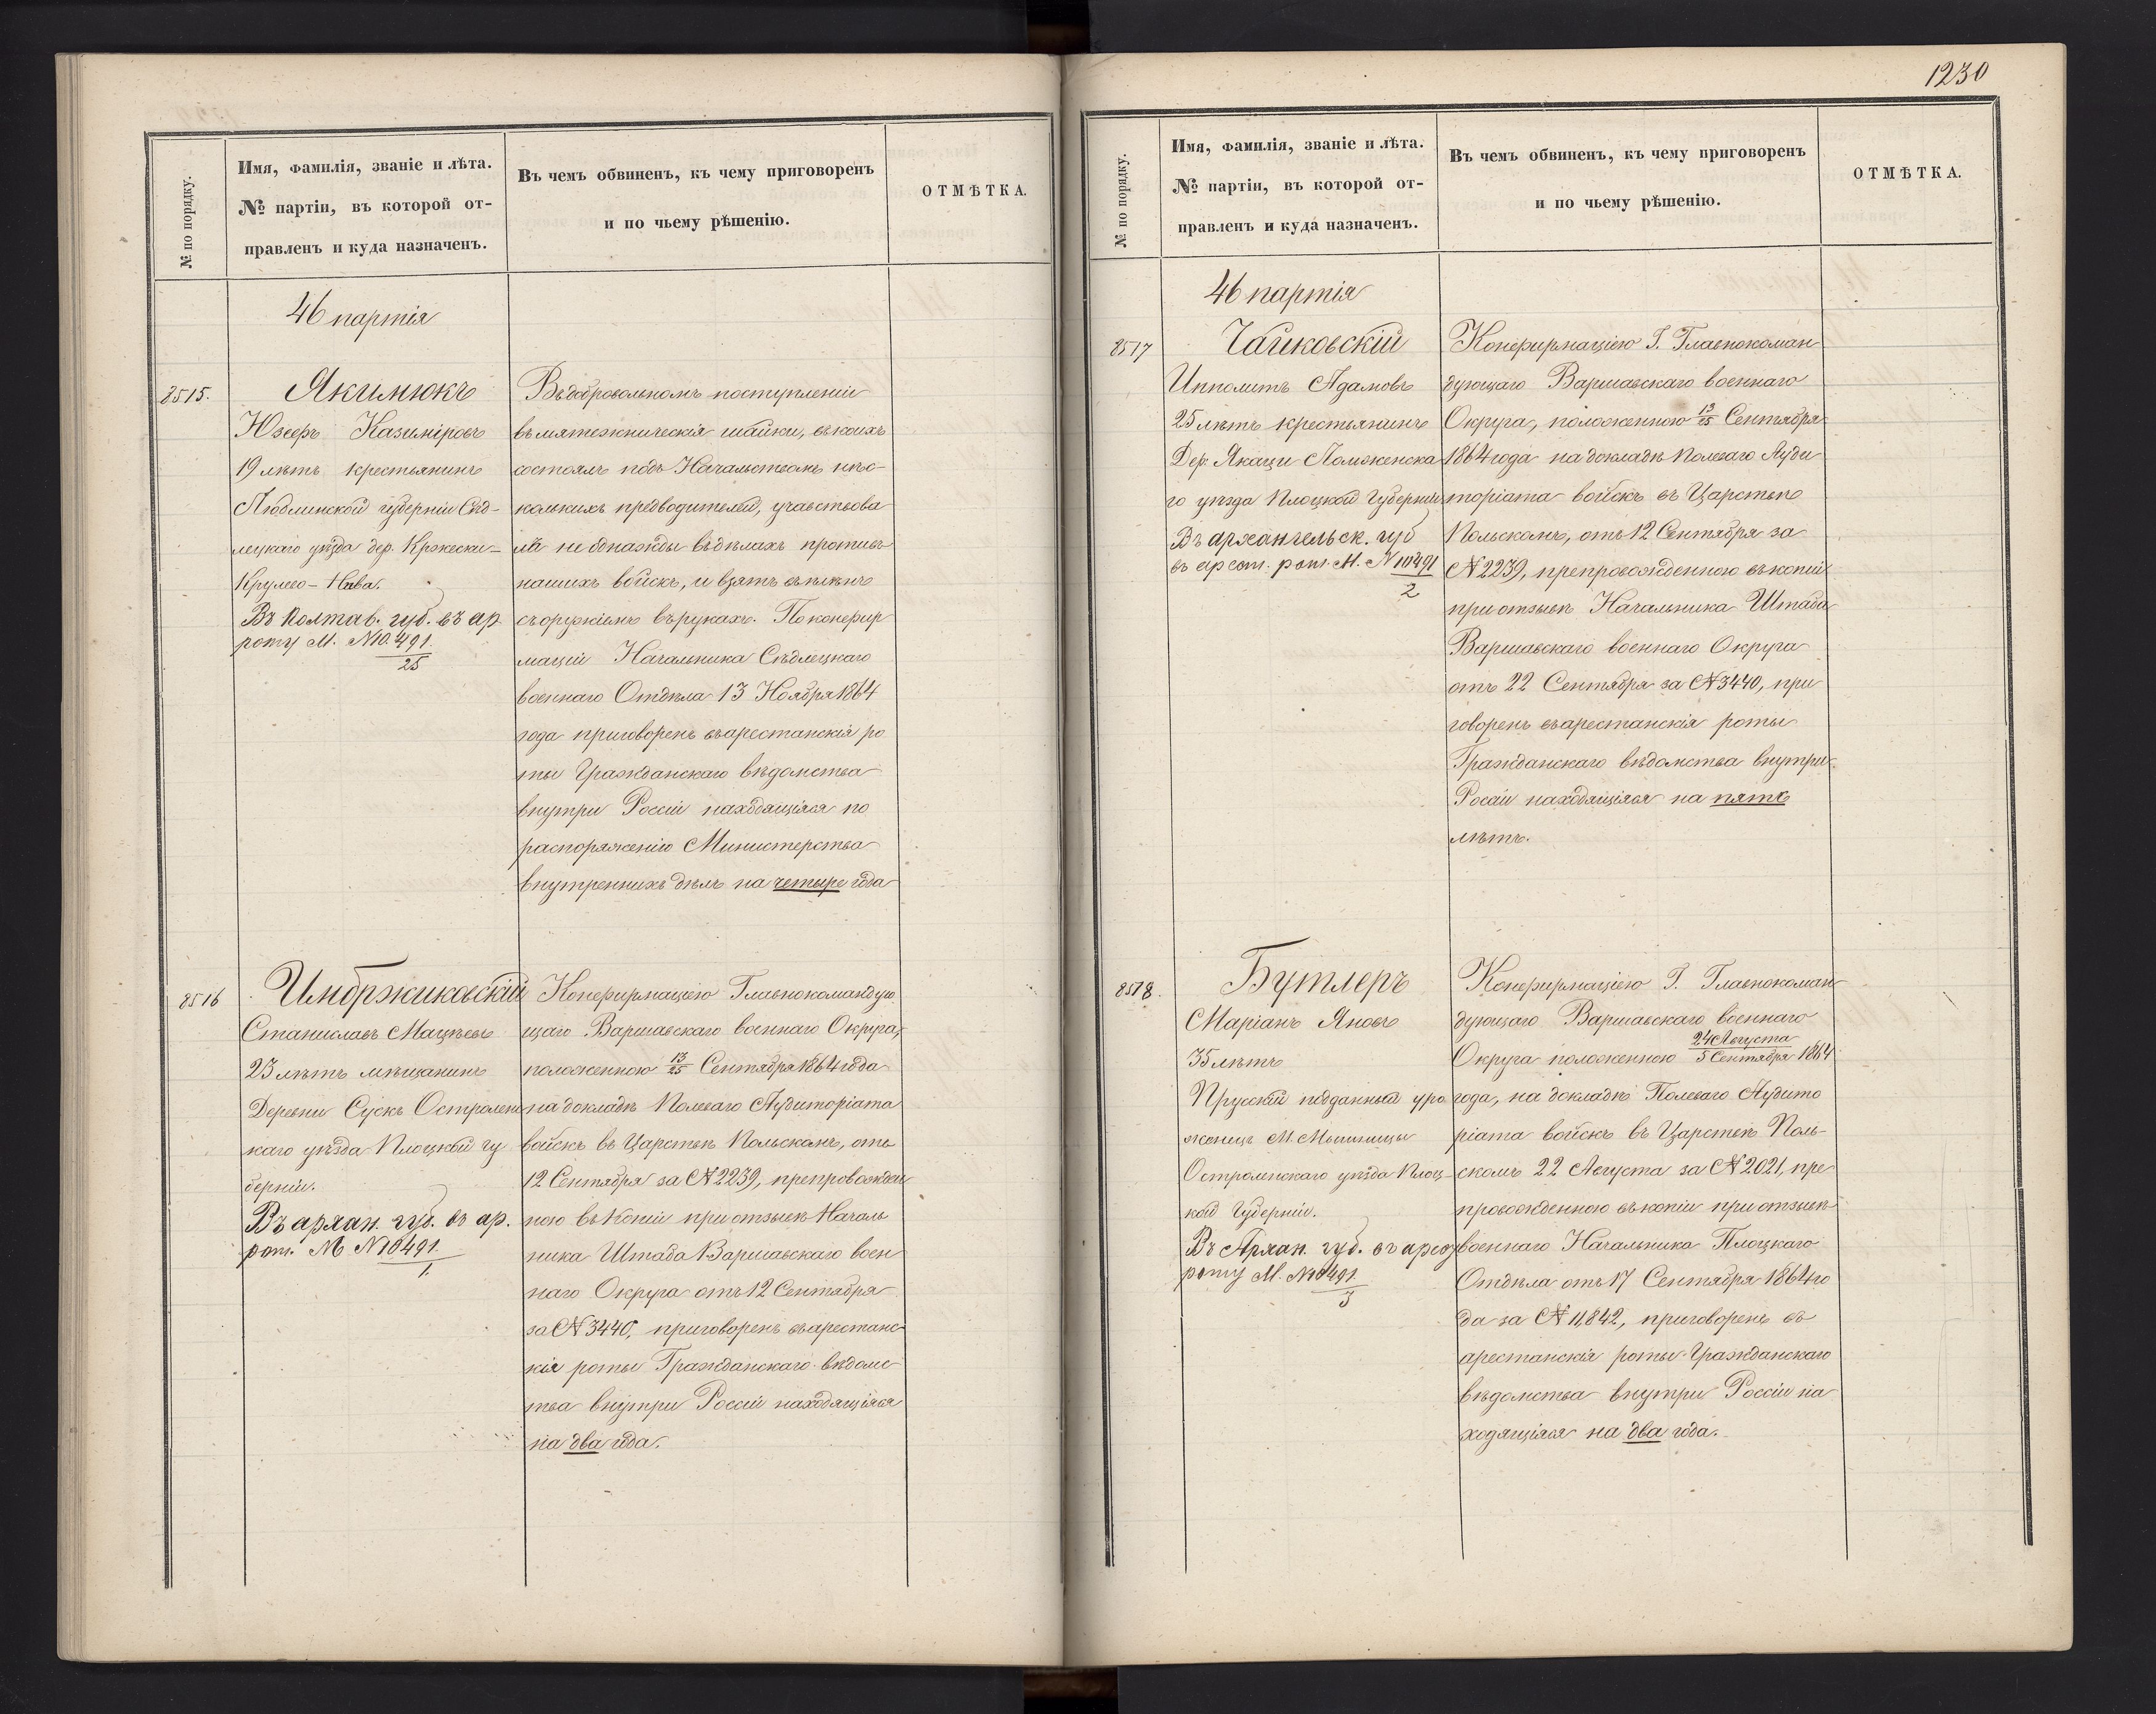 № по порядку.
Имя, фамилія, званіе и лѣта.
№ партіи, въ которой от-
правленъ и куда назначенъ.
Въ чемъ обвиненъ, къ чему приговоренъ
и по чьему рѣшенію.
ОТМѢТКА.
46 партія
8515.
Якимюкъ
Юзефъ Казиміровъ
19 лѣтъ крестьянинъ
Люблинской губерніи Сѣд-
лецкаго уѣзда дер. Кржески-
Крулево-Нива.
Въ Полтав. губ. въ ар.
роту М. № 10.491.
25
Въ добровольномъ поступленіи
въ мятежническія шайки, въ коихъ
состоялъ подъ Начальствомъ нѣс-
колькихъ предводителей, учавствова
лъ не однажды въ дѣлахъ противъ
нашихъ войскъ, и взятъ въ плѣнъ
съ оружіемъ въ рукахъ. По конфир
маціи Начальника Сѣдлецкаго
военнаго Отдѣла 13 Ноября 1864
года приговоренъ въ арестанскія ро
ты Гражданскаго вѣдомства
внутри Россіи находящіяся по
распоряженію Министерства
внутреннихъ дѣлъ на четыре года
8516
Имбржиковскій
Станиславъ Мацѣевъ
23 лѣтъ мѣщанинъ
Деревни Сускъ Остроленс
каго уѣзда Плоцкой гу
берніи.
Въ архан. губ. въ ар.
рот. М № 10491.
1.
Конфирмаціею Главнокомандую
щаго Варшавскаго военнаго Округа,
положенною 13/25 Сентября 1864 года
на докладѣ Полеваго Аудиторіата
войскъ въ Царствѣ Польскомъ, отъ
12 Сентября за № 2239, препровожден
ною въ копіи при отзывѣ Началь
ника Штаба Варшавскаго воен
наго Округа отъ 12 Сентября
за № 3440, приговоренъ въ арестанс-
кія роты Гражданскаго вѣдомс
тва внутри Россіи находящіяся
на два года.
1230
№ по порядку.
Имя, фамилія, званіе и лѣта.
№ партіи, въ которой от-
правленъ и куда назначенъ.
Въ чемъ обвиненъ, къ чему приговоренъ
и по чьему рѣшенію.
ОТМѢТКА.
46 партія
8517
Чайковскій
Ипполитъ Адамовъ
25 лѣтъ крестьянинъ
Дер. Якаци Ломженска
го уѣзда Плоцкой Губерніи
Въ архангельск. губ
въ арест. рот. М. № 10491
2
Конфирмаціею Г. Главнокоман
дующаго Варшавскаго военнаго
Округа, положенною 13/25 Сентября
1864 года на докладѣ Полеваго Ауди
торіата войскъ въ Царствѣ
Польскомъ, отъ 12 Сентября за
№ 2239, препровожденною въ копіи
при отзывѣ Начальника Штаба
Варшавскаго военнаго Округа
отъ 22 Сентября за № 3440, при
говоренъ въ арестанскія роты
Гражданскаго вѣдомства внутри
Росіи находящіяся на пять
лѣтъ.
8518.
Бутлеръ
Маріанъ Яновъ
35 лѣтъ
Прусскій подданный уро
женецъ М. Мышиницы
Остроленскаго уѣзда Плоц-
кой Губерніи.
Въ Архан. губ. въ арест
роту М. № 10491
3
Конфирмаціею Г. Главнокоман
дующаго Варшавскаго военнаго
Округа положенною 24 Августа/5 Сентября 1864
года, на докладѣ Полеваго Аудито
ріата войскъ въ Царствѣ Поль-
скомъ 22 Августа за № 2021, пре
провожденною въ копіи при отзывѣ
военнаго Начальника Плоцкаго
Отдѣла отъ 17 Сентября 1864 го
да за № 11842, приговоренъ въ
арестанскія роты Гражданскаго
вѣдомства внутри Россіи на
ходящіяся на два года.